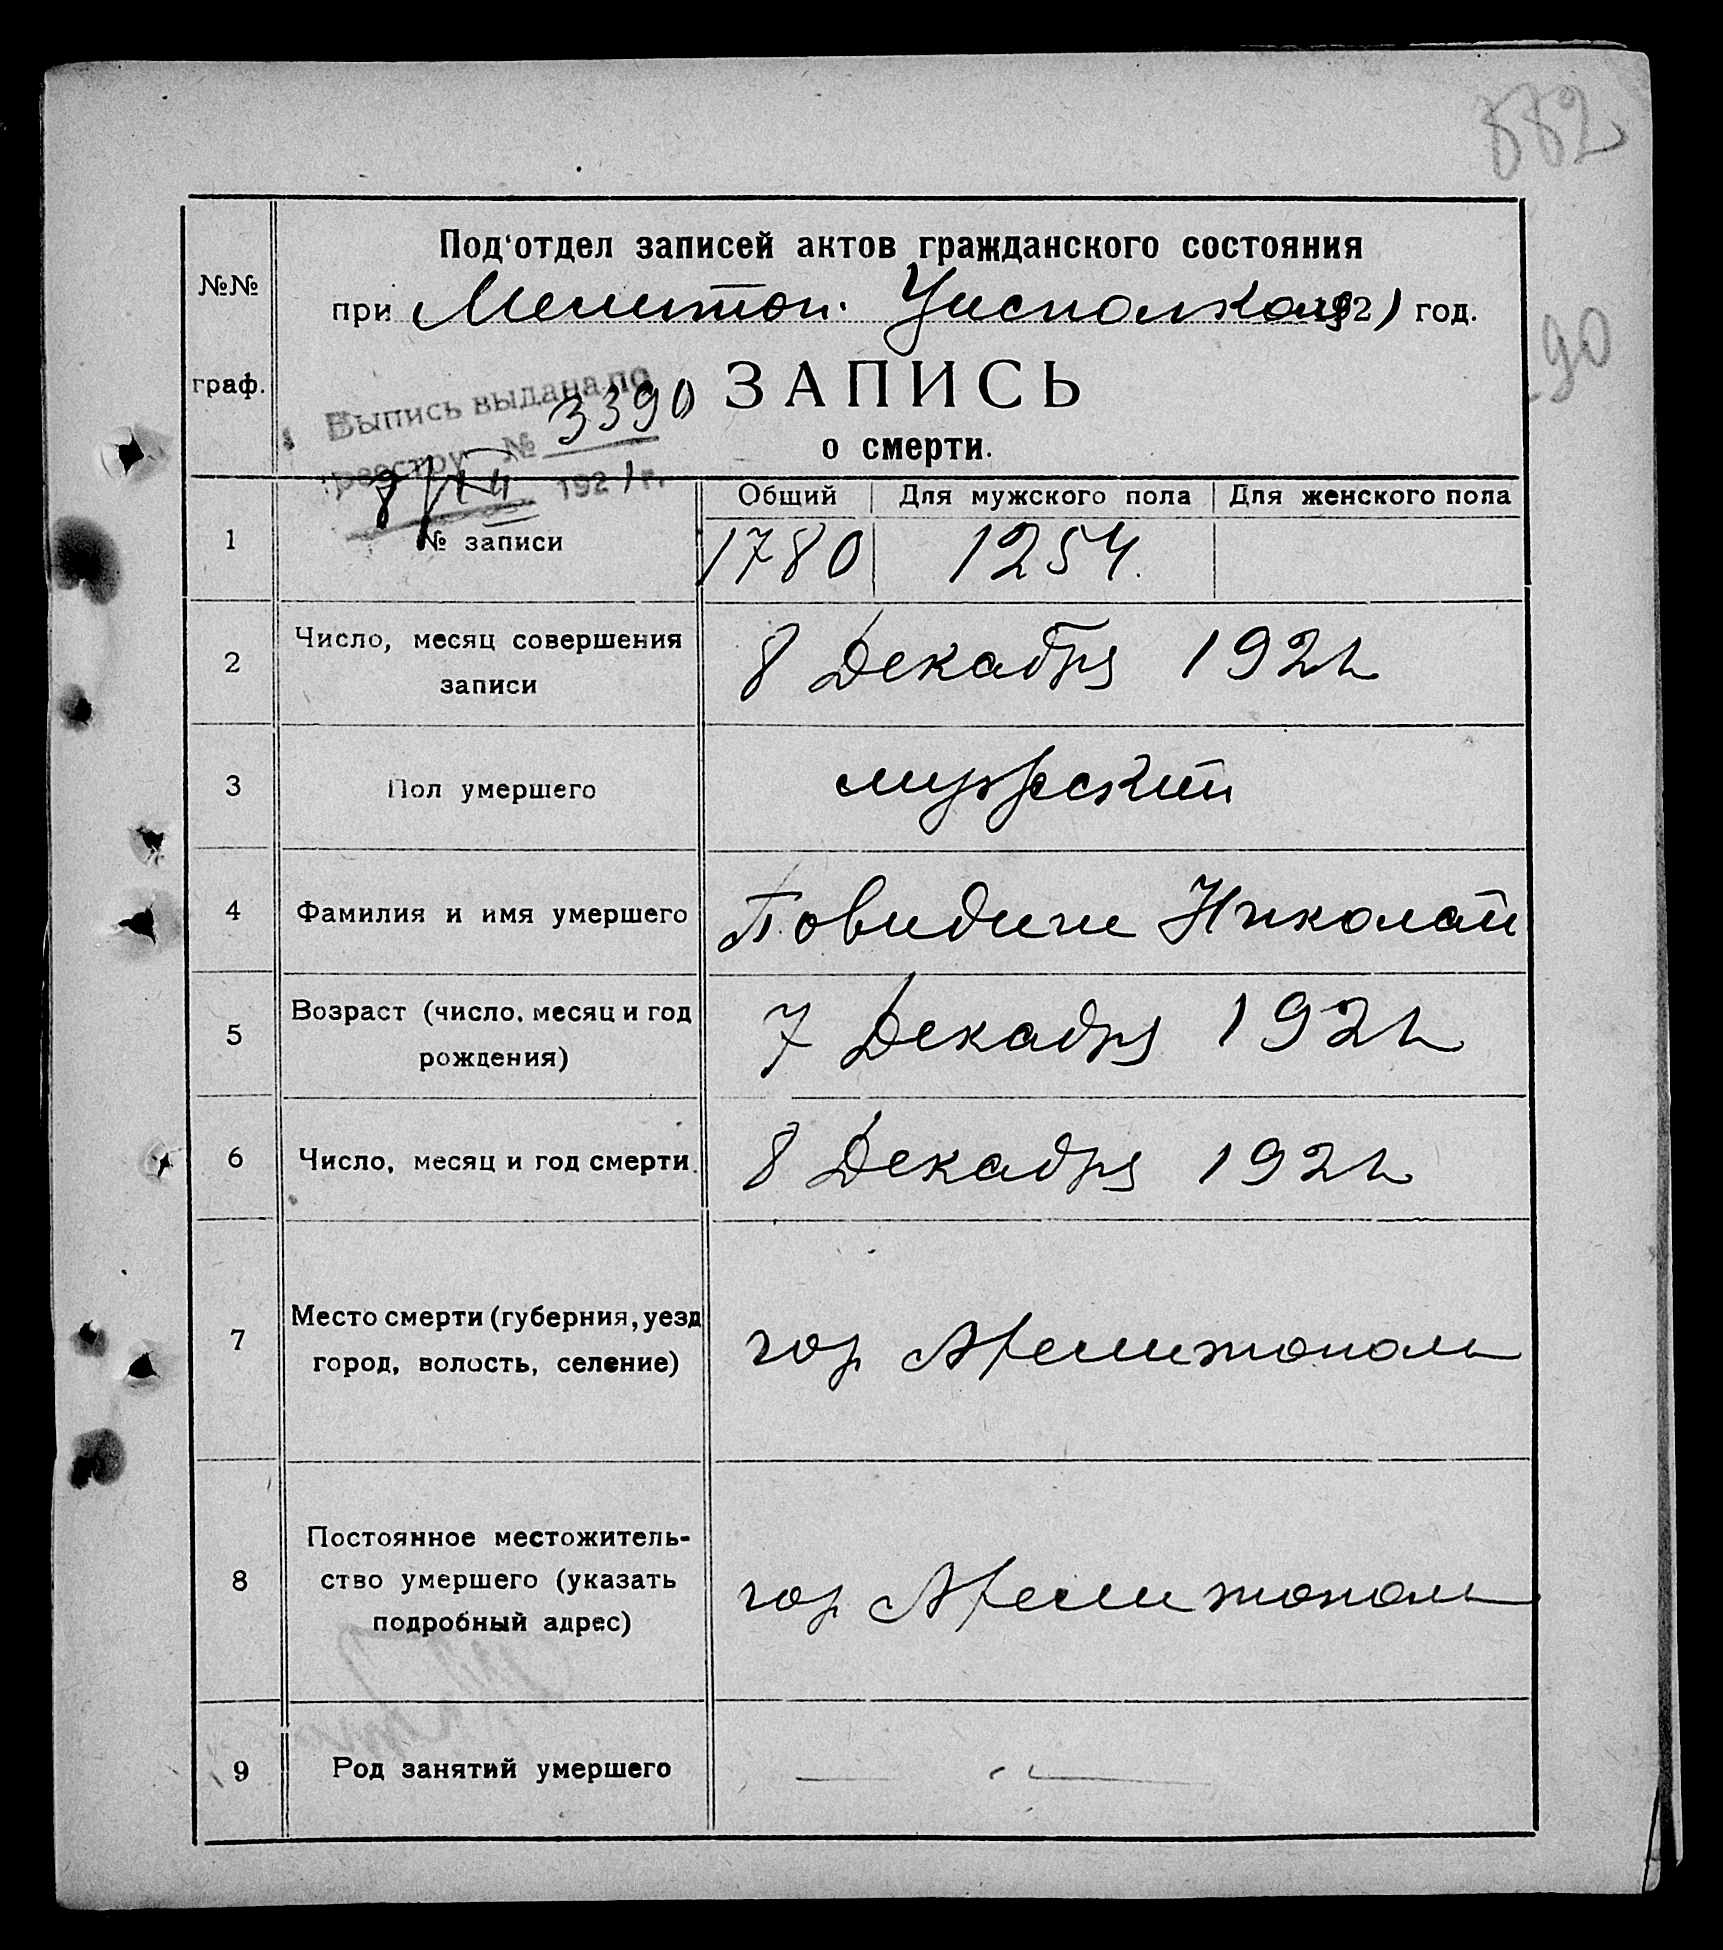 882
Под'отдел записей актов гражданского состояния
№№
при Мелитоп. Уисполкоме 1921 год.
90
граф.
ЗАПИСЬ
Выпись выдана по
реестру № 3390
о смерти.
8/XII 1921 г.
Общий Для мужского пола Для женского пола
1 № записи 1780 1254.
2 Число, месяц совершения
записи
8 Декабря 1921
3 Пол умершего мужской
4 Фамилия и имя умершего Николай
5 Возраст (число, месяц и год
рождения)
7 Декабря 1921
6 Число, месяц и год смерти. 8 Декабря 1921
7 Место смерти (губерния, уезд
город, волость, селение)
гор Мелитополь
8 Постоянное местожитель-
ство умершего (указать
подробный адрес)
гор Мелитополь
9 Род занятий умершего —